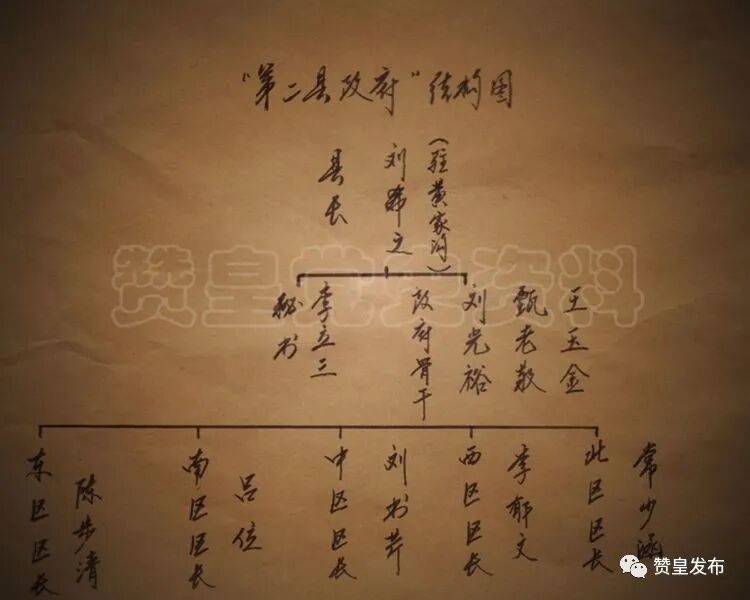 “第二县政府”结构图
县长
刘希之
(驻黄家沟)
赞皇党史资料
秘书
李立三
政府骨干
刘光裕
甄老敬
王玉金
东区区长
陈步清
南区区长
吕位
中区区长
刘书芹
西区区长
李郁文
北区区长
常少涵
赞皇发布